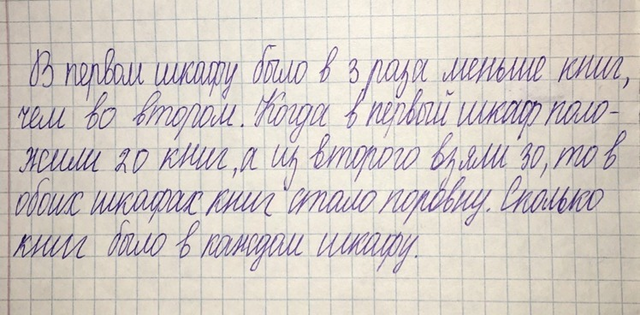 В первом шкафу было в 3 раза меньше книг,
чем во втором. Когда в первый шкаф поло-
жили 20 книг, а из второго взяли 30, то в
обоих шкафах книг стало поровну. Сколько
книг было в каждом шкафу.